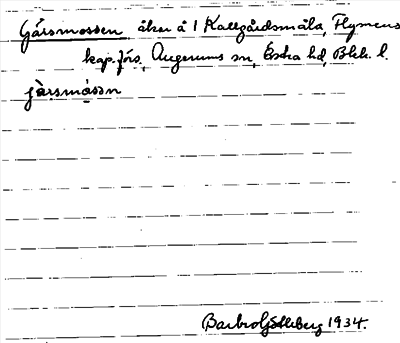 Gårsmossen åker å 1 Kallgårdsmåla, Flymens
kap.förs, Augerums sn, Östra hd, Blek. l.
jàrsmósən
Barbro Söderberg 1934.